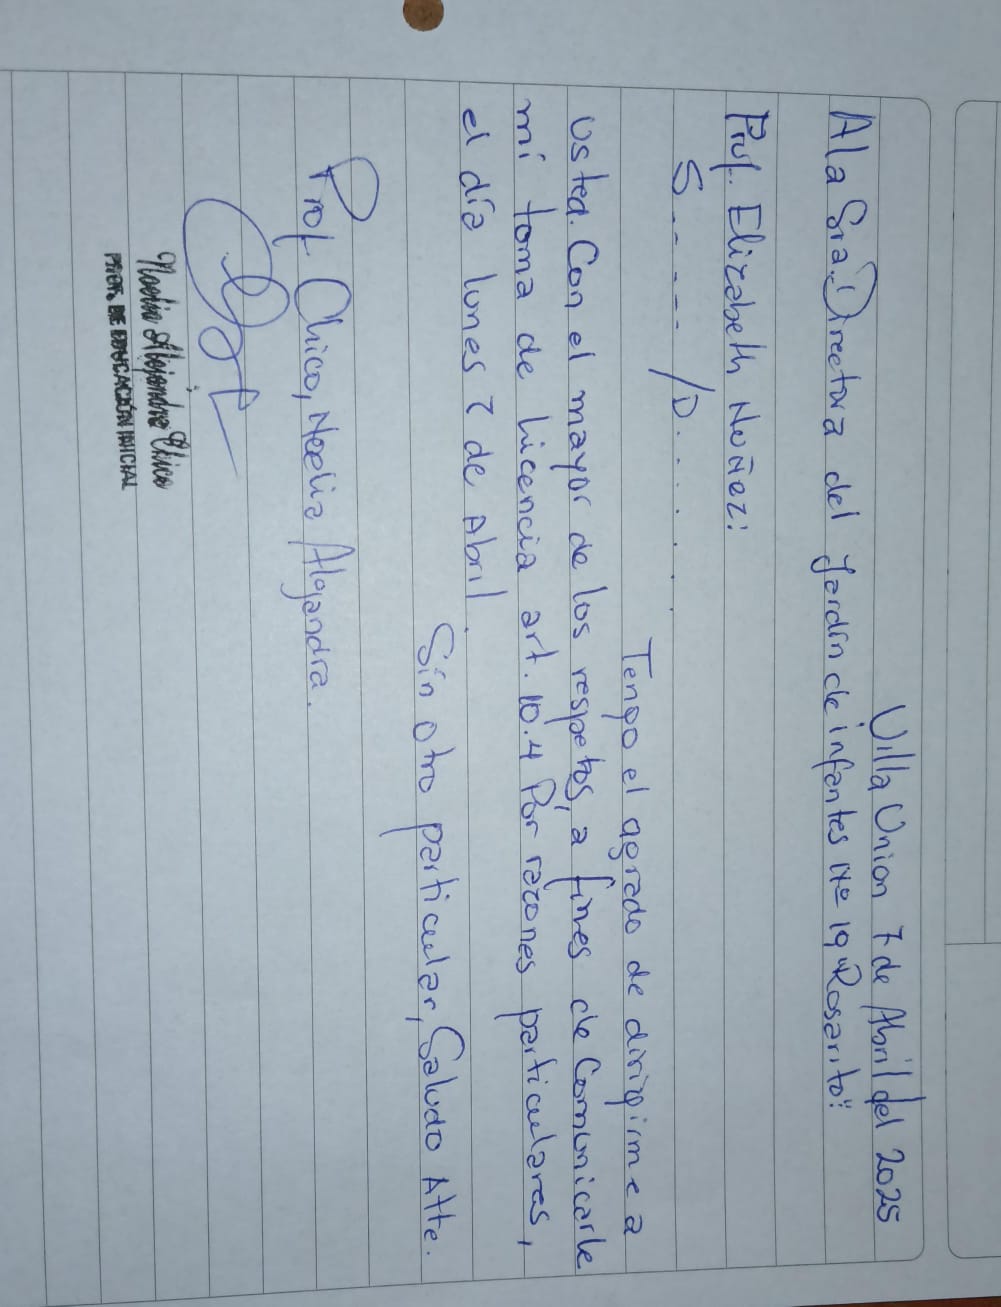 Villa Union 7 de Abril del 2025
A la Sra. Directora del Jardin de infantes Nº 19 "Rosarito":
Prof. Elizabeth Nuñez:
S...../D......
Tengo el agrado de dirigirme a
usted. Con el mayor de los respetos, a fines de Comunicarle
mi toma de licencia art. 10.4 Por razones particulares,
el día lunes 7 de Abril.
Sin otro particular, Saludo Atte.
Prof. Chico, Noelia Alejandra.
Noelia Alejandra Chico
PROF. DE EDUCACIÓN INICIAL